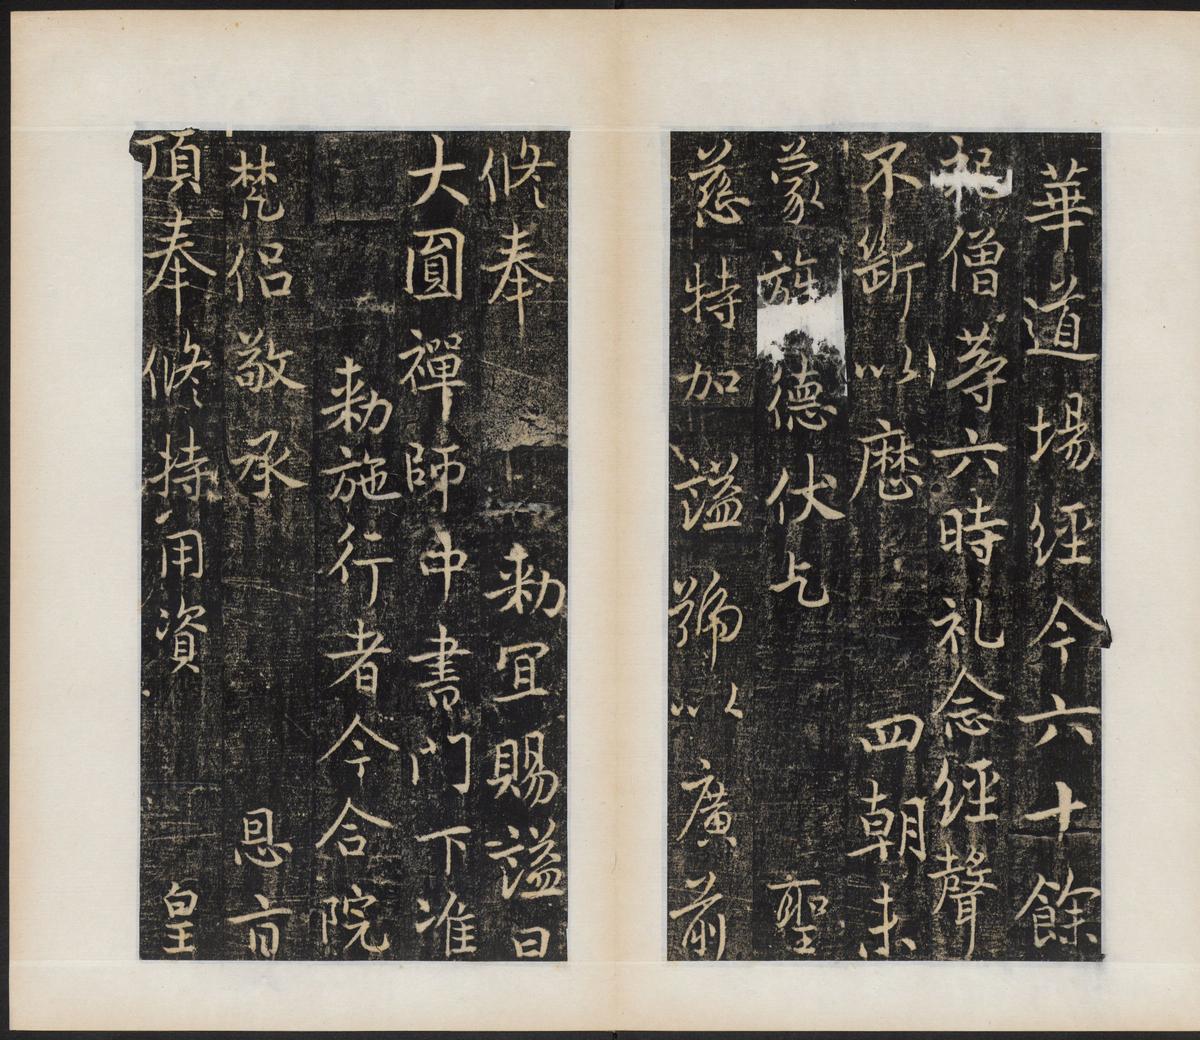 華道場經今六十餘
祀僧等六時礼念經聲
不斷以歷四朝未
蒙旌德伏乞聖
慈特加諡號以廣前
修奉敕宜賜諡曰
大圓禪師中書門下准
敕施行者今合院
梵侶敬承恩旨
頂奉修持用資皇